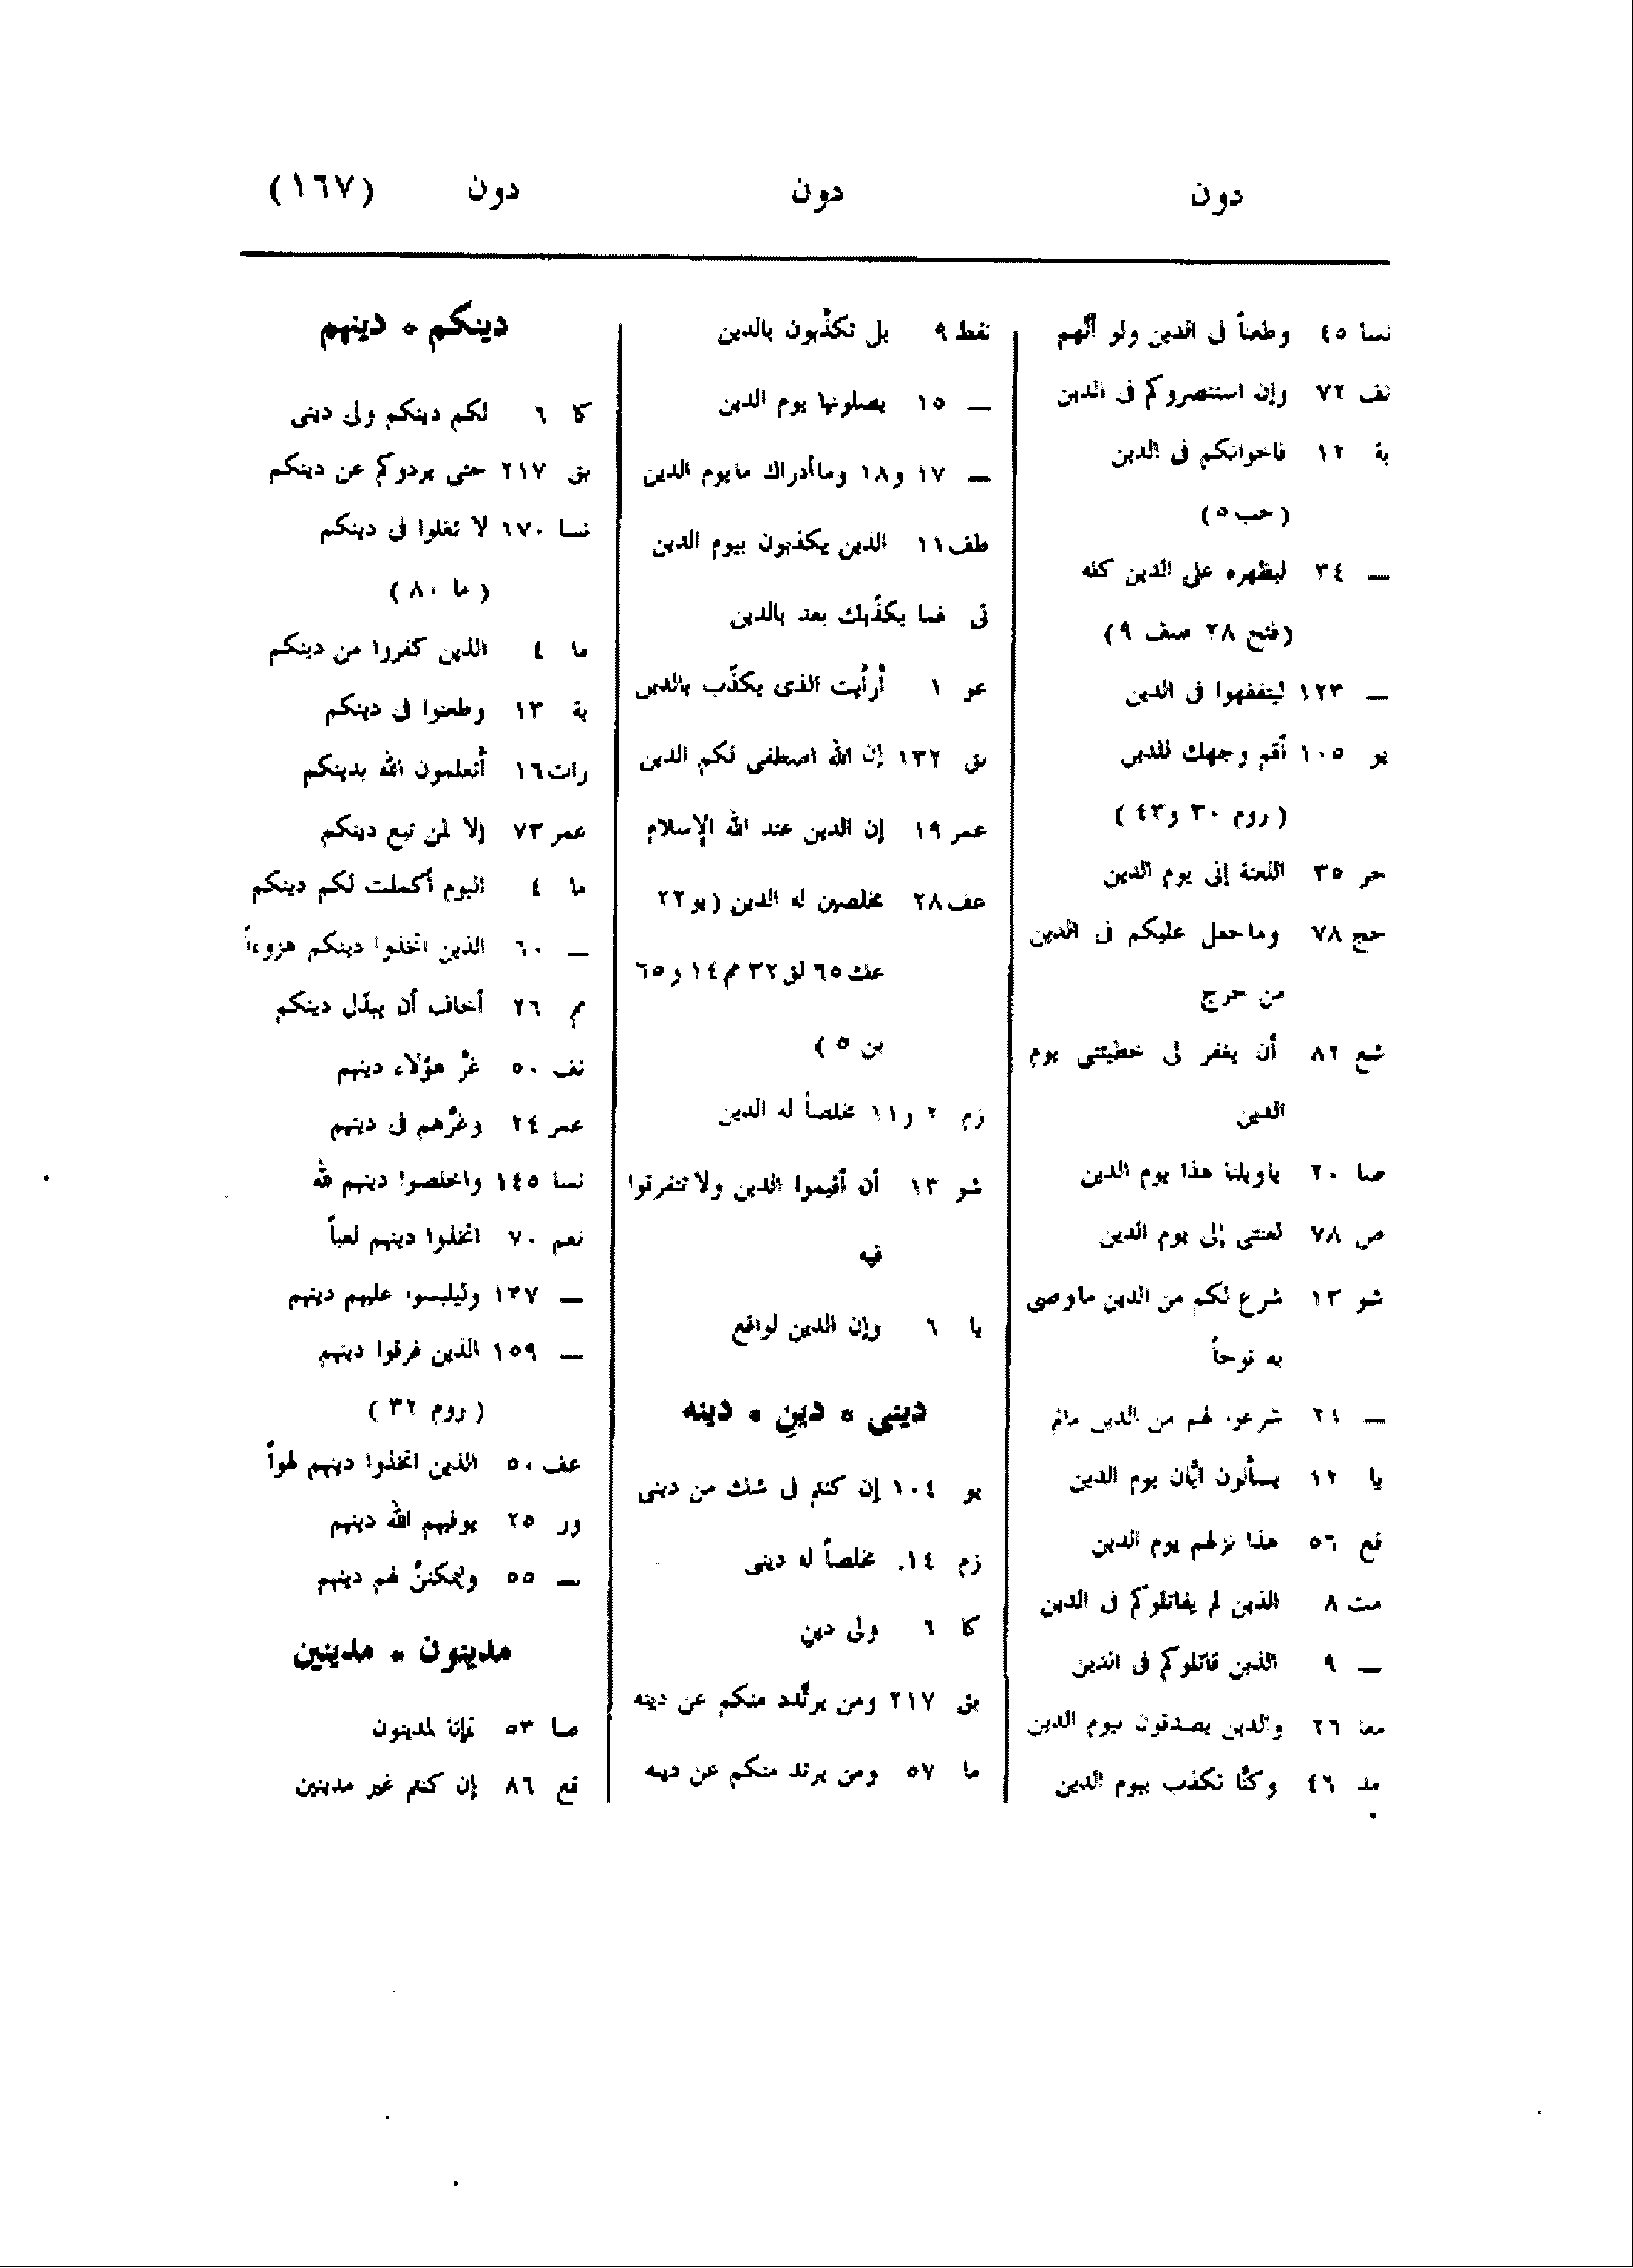 دون
دون
دون (١٦٧)
نسا ٤٥ وطعناً فى الدين ولو أنّهم
نف ٧٢ وإن استنصروكم فى الدين
بة ١٢ فاخوانكم فى الدين
(حب ٥)
ــ ٣٤ ليظهره على الدين كله
(فتح ٢٨ صف ٩)
ــ ١٢٣ ليتفقهوا فى الدين
يو ١٠٥ أقم وجهك للدين
(روم ٣٠ و٤٣)
حر ٣٥ اللعنة إلى يوم الدين
حج ٧٨ وماجعل عليكم فى الدين
من حرج
شع ٨٢ أن يغفر لى خطيئتى يوم
الدين
صا ٢٠ ياويلنا هذا يوم الدين
ص ٧٨ لعنتى إلى يوم الدين
شو ١٣ شرع لكم من الدين ماوصى
به نوحاً
ــ ٢١ شرعوا لهم من الدين مالم
يا ١٢ يسألون أيّان يوم الدين
قع ٥٦ هذا نزلهم يوم الدين
مت ٨ الذين لم يقاتلوكم فى الدين
ــ ٩ الذين قاتلوكم فى الدين
معا ٢٦ والذين يصدقون بيوم الدين
مد ٤٦ وكنّا نكذب بيوم الدين
نفط ٩ بل تكذّبون بالدين
ــ ١٥ يصلونها يوم الدين
ــ ١٧ و١٨ وماأدراك مايوم الدين
طف ١١ الذين يكذبون بيوم الدين
تى فما يكذّبك بعد بالدين
عو ١ أرأيت الذى يكذّب بالدين
بق ١٣٢ إن الله اصطفى لكم الدين
عمر ١٩ إن الدين عند الله الإسلام
عف ٢٨ مخلصين له الدين (يو ٢٢
عك ٦٥ لق ٣٢ مم ١٤ و٦٥
بن ٥)
زم ٢ و١١ مخلصاً له الدين
شو ١٣ أن أقيموا الدين ولا تتفرقوا
فيه
يا ٦ وإن الدين لواقع
دينى * دينِ * دينه
يو ١٠٤ إن كنتم فى شك من دينى
زم ١٤ مخلصاً له دينى
كا ٦ ولى دينِ
بق ٢١٧ ومن يرتدد منكم عن دينه
ما ٥٧ ومن يرتد منكم عن دينه
دينكم * دينهم
كا ٦ لكم دينكم ولى دينى
بق ٢١٧ حتى يردوكم عن دينكم
نسا ١٧٠ لا تغلوا فى دينكم
(ما ٨٠)
ما ٤ الذين كفروا من دينكم
بة ١٣ وطعنوا فى دينكم
رات ١٦ أتعلمون الله بدينكم
عمر ٧٣ إلا لمن تبع دينكم
ما ٤ اليوم أكملت لكم دينكم
ــ ٦٠ الذين اتخذوا دينكم هزوءاً
مم ٢٦ أخاف أن يبدّل دينكم
نف ٥٠ غرَّ هؤلاء دينهم
عمر ٢٤ وغرَّهم فى دينهم
نسا ١٤٥ واخلصوا دينهم لله
نعم ٧٠ اتخذوا دينهم لعباً
ــ ١٣٧ وليلبسوا عليهم دينهم
ــ ١٥٩ الذين فرقوا دينهم
(روم ٣٢)
عف ٥٠ الذين اتخذوا دينهم لهواً
ور ٢٥ يوفيهم الله دينهم
ــ ٥٥ وليمكننَّ لهم دينهم
مدينون * مدينين
صا ٥٣ ءإنا لمدينون
قع ٨٦ إن كنتم غير مدينين